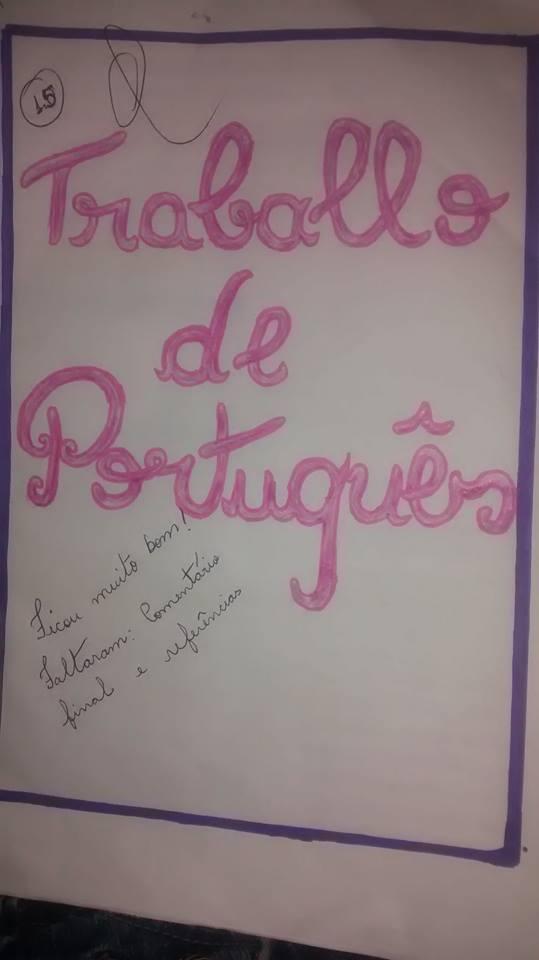 1.5
Traballo
de
Português
Ficou muito bom!
Faltaram: Comentário
final e referências